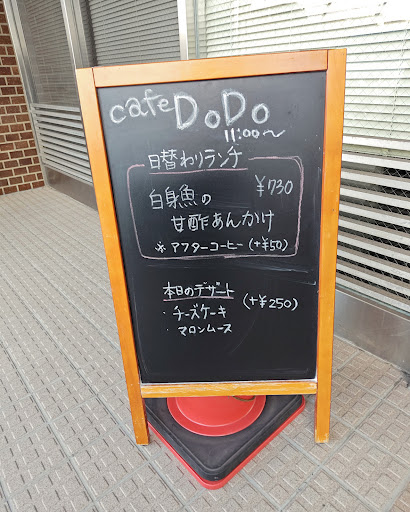 cafe DoDo
11:00〜
日替わりランチ
白身魚の ¥730
甘酢あんかけ
※ アフターコーヒー (+¥50)
本日のデザート
・チーズケーキ (+¥250)
・マロンムース